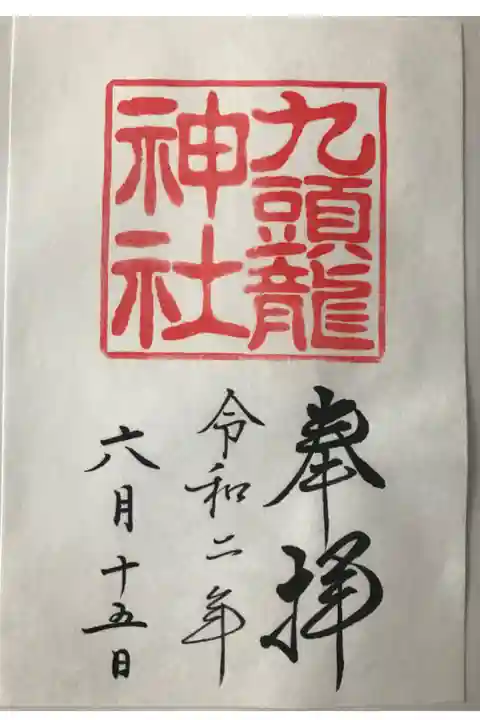 九頭龍
神社
奉拝
令和二年
六月十五日